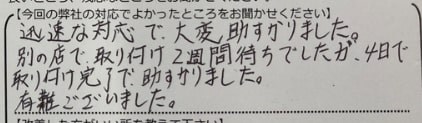 【今回の弊社の対応でよかったところをお聞かせください】
迅速な対応で、大変助すかりました。
別の店で、取り付け2週間待ちでしたが、4日で
取り付け完了で助すかりました。
有難ございました。